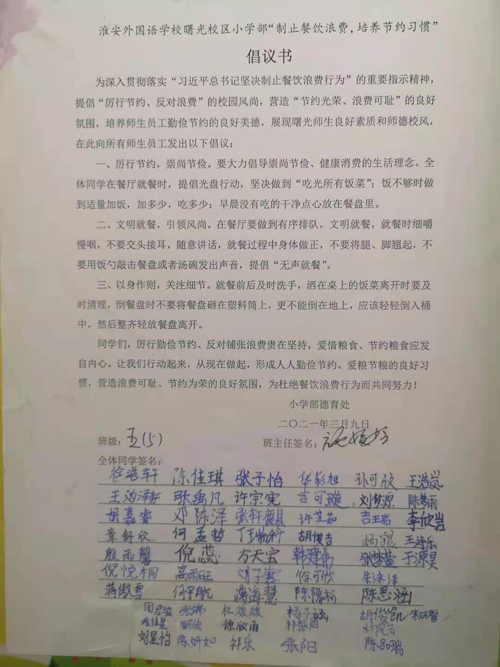 淮安外国语学校曙光校区小学部“制止餐饮浪费,培养节约习惯”
倡议书
为深入贯彻落实“习近平总书记坚决制止餐饮浪费行为”的重要指示精神,
提倡“厉行节约、反对浪费”的校园风尚,营造“节约光荣、浪费可耻”的良好
氛围,培养师生员工勤俭节约的良好美德,展现曙光师生良好素质和师德校风,
在此向所有师生员工发出以下倡议:
一、厉行节约,崇尚节俭。要大力倡导崇尚节俭、健康消费的生活理念。全
体同学在餐厅就餐时,提倡光盘行动,坚决做到“吃光所有饭菜”;饭不够时做
到适量加饭,加多少,吃多少;早晨没有吃的干净点心放在餐盘里。
二、文明就餐,引领风尚。在餐厅要做到有序排队,文明就餐,就餐时细嚼
慢咽,不要交头接耳,随意讲话,就餐过程中身体做正,不要将腿、脚翘起,不
要用饭勺敲击餐盘或者汤碗发出声音,提倡“无声就餐”。
三、以身作则,关注细节。就餐前后及时洗手,洒在桌上的饭菜离开时要及
时清理,倒餐盘时不要将餐盘砸在塑料筒上,更不能倒在地上,应该轻轻倒入桶
中,然后整齐轻放餐盘离开。
同学们,厉行勤俭节约、反对铺张浪费贵在坚持,爱惜粮食、节约粮食应发
自内心。让我们行动起来,从现在做起,形成人人勤俭节约、爱粮节粮的良好习
惯,营造浪费可耻、节约为荣的良好氛围,为杜绝餐饮浪费行为而共同努力!
小学部德育处
二〇二一年三月九日
班级: 五(5) 班主任签名:
全体同学签名:
徐浩轩 陈佳琪 张子怡 华彩旭 孙可欣 王浩岚
张禹凡 许宗宪 刘梦源
胡嘉睿 邓陈泽 张轩麒 许芷茹 吉王瑞 李欣岩
章舒欣 何孟哲 胡俊吉
殷雨馨 倪蕊 方天宝 韩建甫 于源昊
高雨旺 徐可欣
蒋傲雪 何宇航 陈思涵
徐欣雨
刘星怡 陈妍如 祁乐 张阳 陈昌瑞